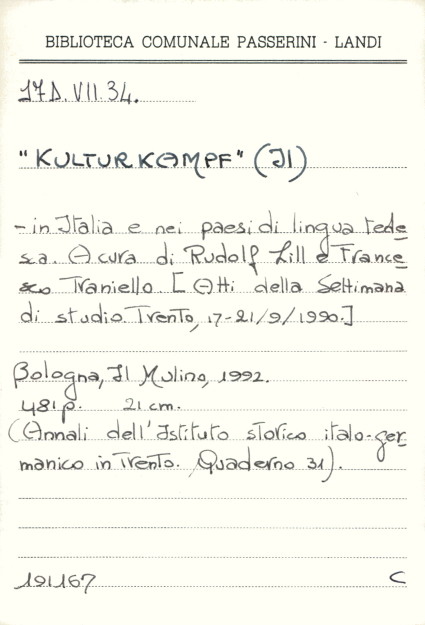 BIBLIOTECA COMUNALE PASSERINI - LANDI
17D.VII.34.
"KULTURKAMPF" (Il)
- in Italia e nei paesi di lingua tede
sca. A cura di Rudolf Lill e France
sco Traniello [Atti della Settimana
di studio. Trento, 17-21/9/1990.]
Bologna, Il Mulino, 1992.
481 p. 21 cm.
(Annali dell'Istituto storico italo-ger
manico in Trento. Quaderno 31).
191167 C